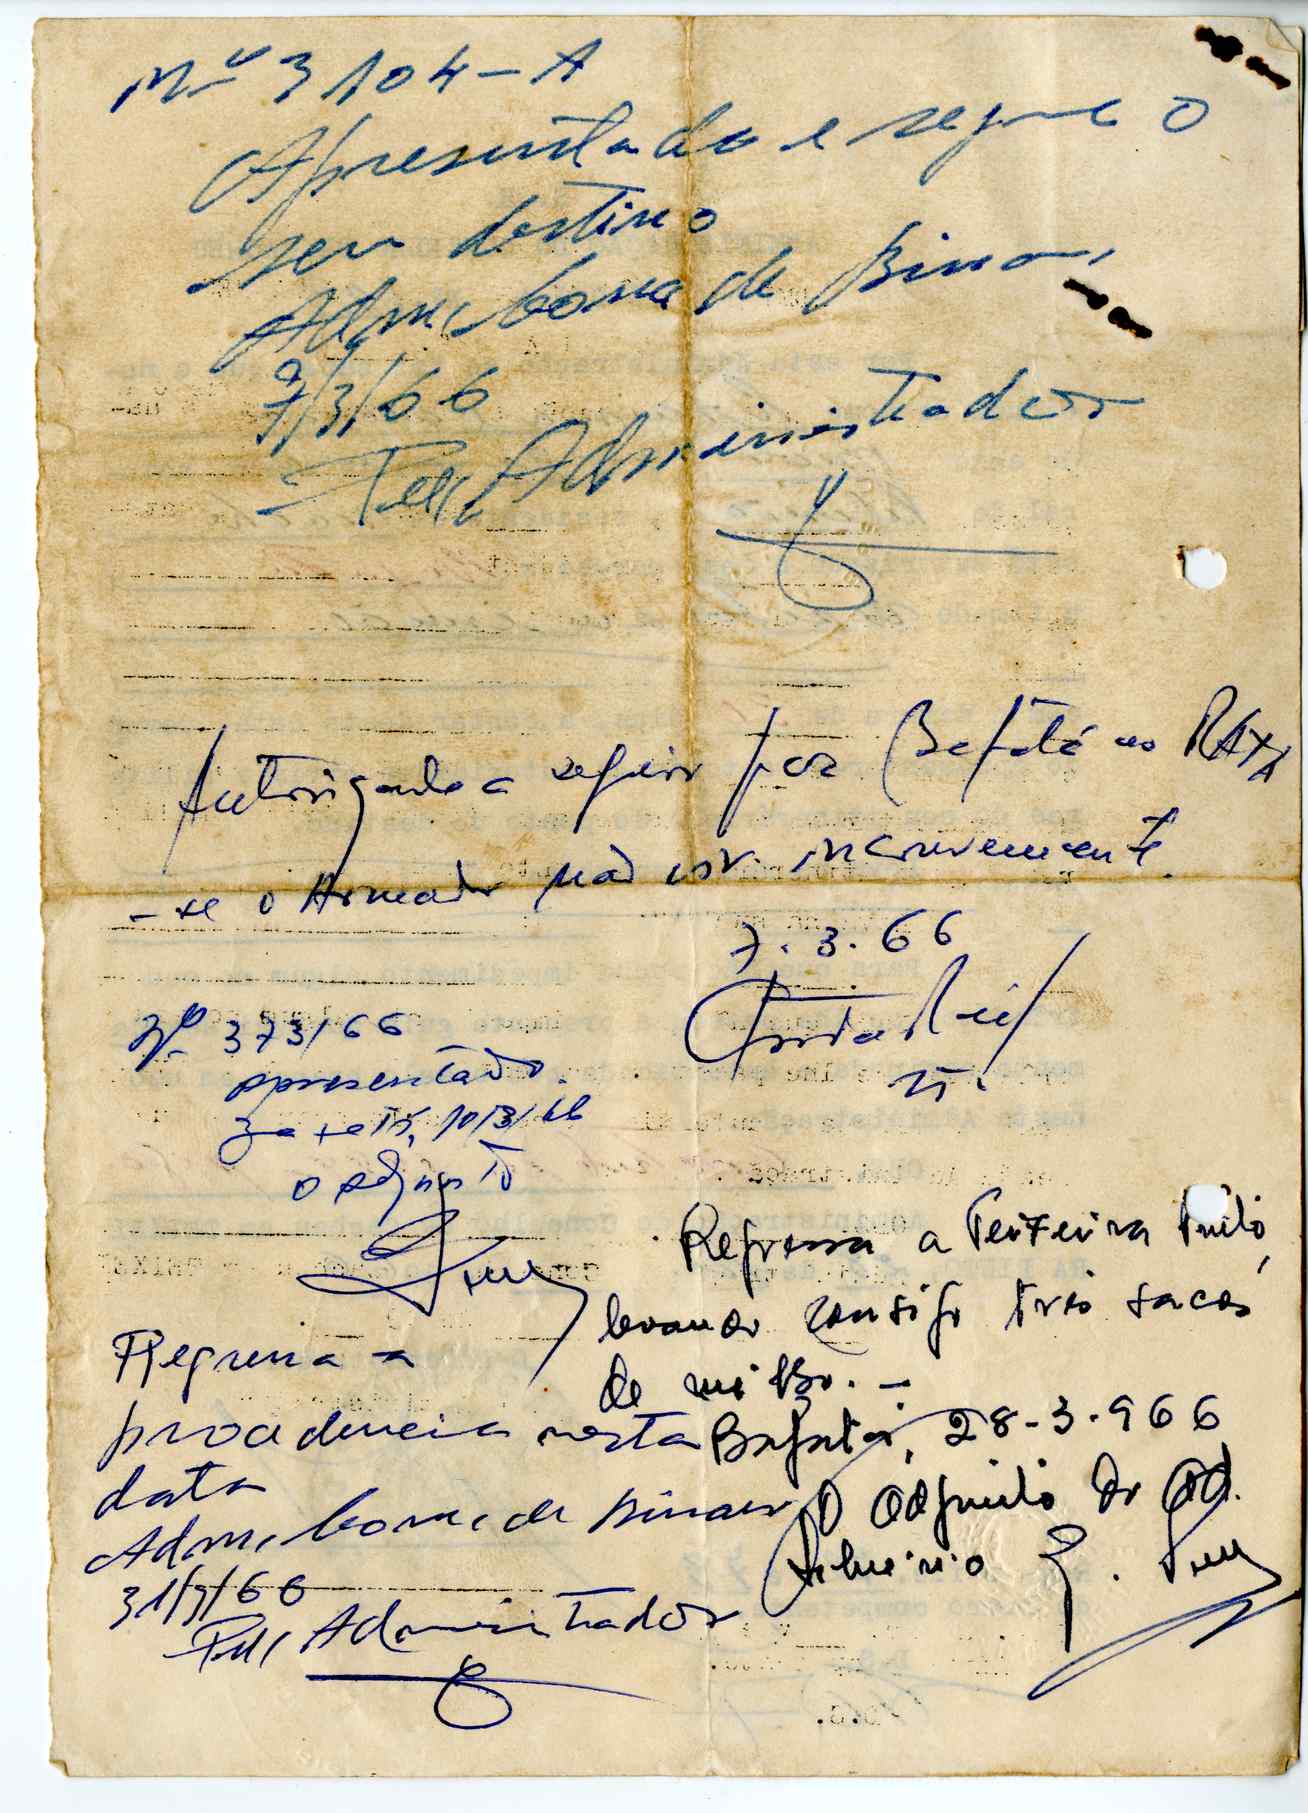 Nº 3104-A
Apresentado e segue o
seu destino
Adm. Conc. de Bissau,
7/3/66
Pelo Administrador
Autorizado a seguir por Bafatá no RAXA
- se o Armador não vir inconveniente.
7.3.66
Nº 373/66
apresentado.
Bafatá, 10/3/66
O adjunto
Regressa a Teixeira Pinto,
levando consigo três sacos
de milho. -
Bafatá, 28-3-966
O Adjunto do Ad.
Regressa a
procedencia nesta
data
Adm. Conc. de Bissau
31/3/66
Pelo Administrador